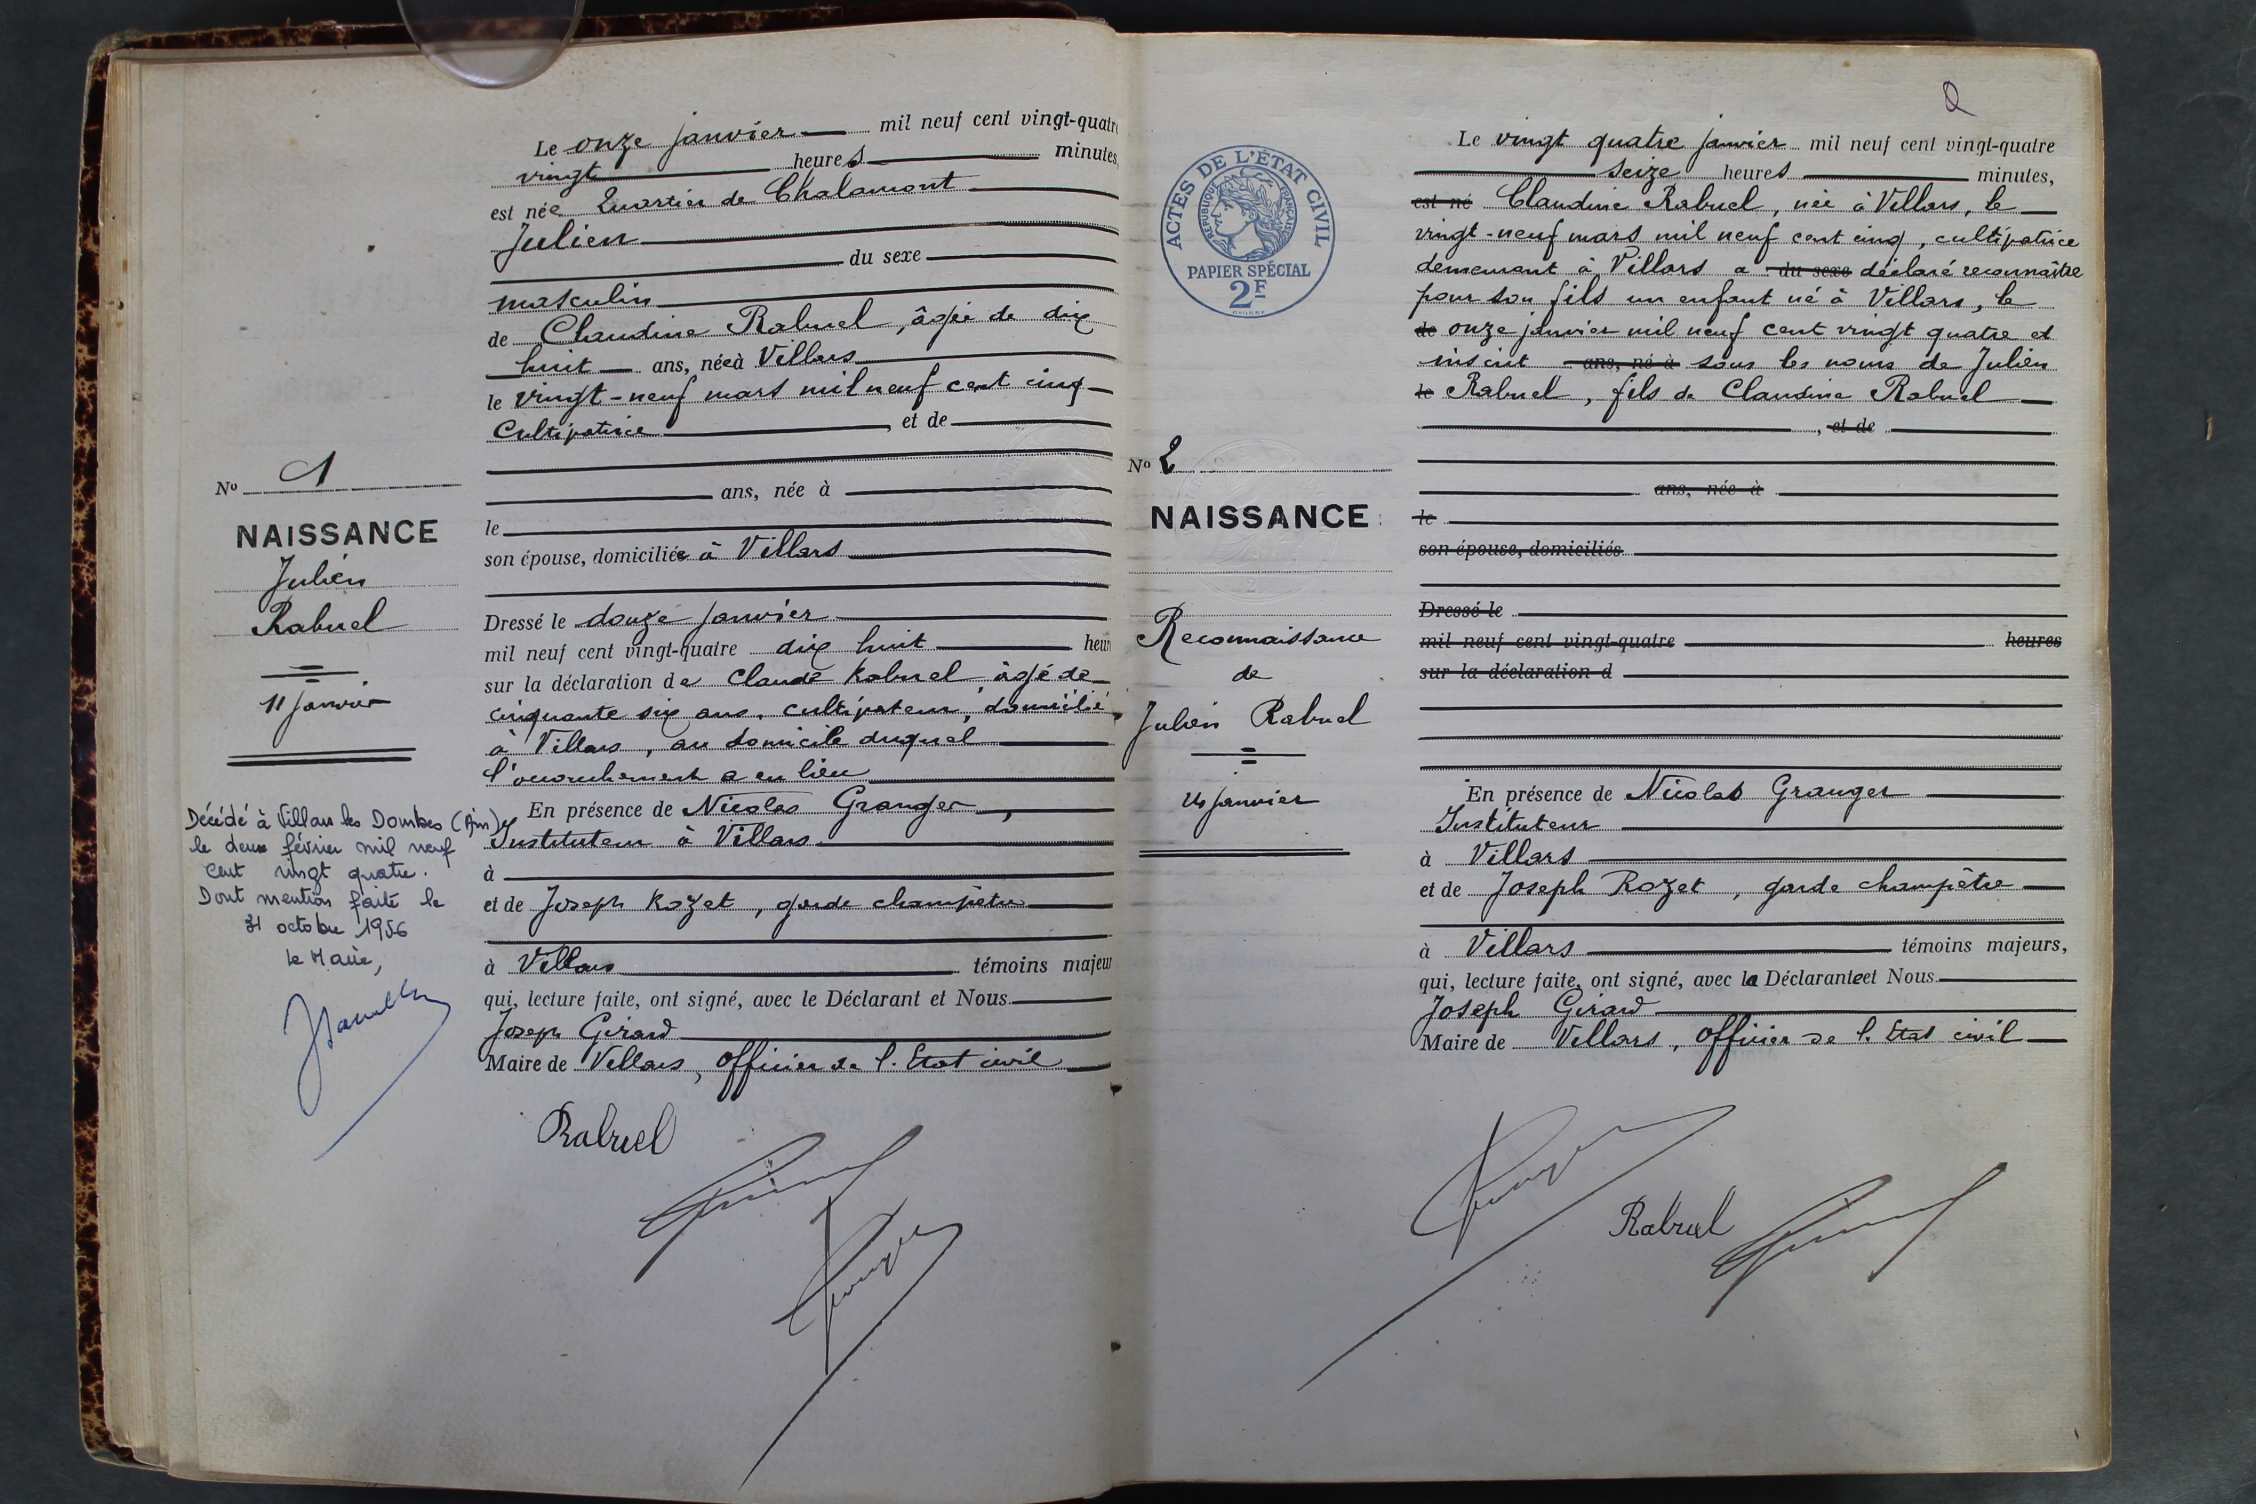 Le onze janvier mil neuf cent vingt-quatre
vingt heures minutes,
est née Quartier de Chalamont
Julien
du sexe
masculin
de Claudine Rabuel, âgée de dix
huit ans, née à Villars
le vingt-neuf mars mil neuf cent cinq
cultivatrice, et de
ans, née à
le
son épouse, domiciliée à Villars
Dressé le douze janvier
mil neuf cent vingt-quatre dix huit heur
sur la déclaration de Claude Rabuel, âgé de
cinquante six ans, cultivateur, domicilié
à Villars, au domicile duquel
l'accouchement a eu lieu
En présence de Nicolas Granger,
Instituteur à Villars
à
et de Joseph Rozet, garde champêtre
à Villars témoins majeu
qui, lecture faite, ont signé, avec le Déclarant et Nous
Joseph Girard
Maire de Villars, Officier de l'Etat civil
Rabuel
No 1
NAISSANCE
Julien
Rabuel
11 Janvier
Décédé à Villars les Dombes (Ain)
le deux février mil neuf
cent vingt quatre.
Dont mention faite le
31 octobre 1956
Le Maire,
2
ACTES DE L'ÉTAT CIVIL
RÉPUBLIQUE FRANÇAISE
PAPIER SPÉCIAL
2F
No 2
NAISSANCE
Reconnaissance
de
Julien Rabuel
24 janvier
Le vingt quatre janvier mil neuf cent vingt-quatre
seize heures minutes,
est né Claudine Rabuel, née à Villars, le
vingt-neuf mars mil neuf cent cinq, cultivatrice
demeurant à Villars a du sexe déclaré reconnaître
pour son fils un enfant né à Villars, le
de onze janvier mil neuf cent vingt quatre et
inscrit ans, né à sous les noms de Julien
le Rabuel, fils de Claudine Rabuel
, et de
ans, née à
le
son épouse, domiciliés
Dressé le
mil neuf cent vingt-quatre heures
sur la déclaration d
En présence de Nicolas Granger
Instituteur
à Villars
et de Joseph Rozet, garde champêtre
à Villars témoins majeurs,
qui, lecture faite, ont signé, avec la Déclarante et Nous
Joseph Girard
Maire de Villars, Officier de l'Etat civil
Rabuel